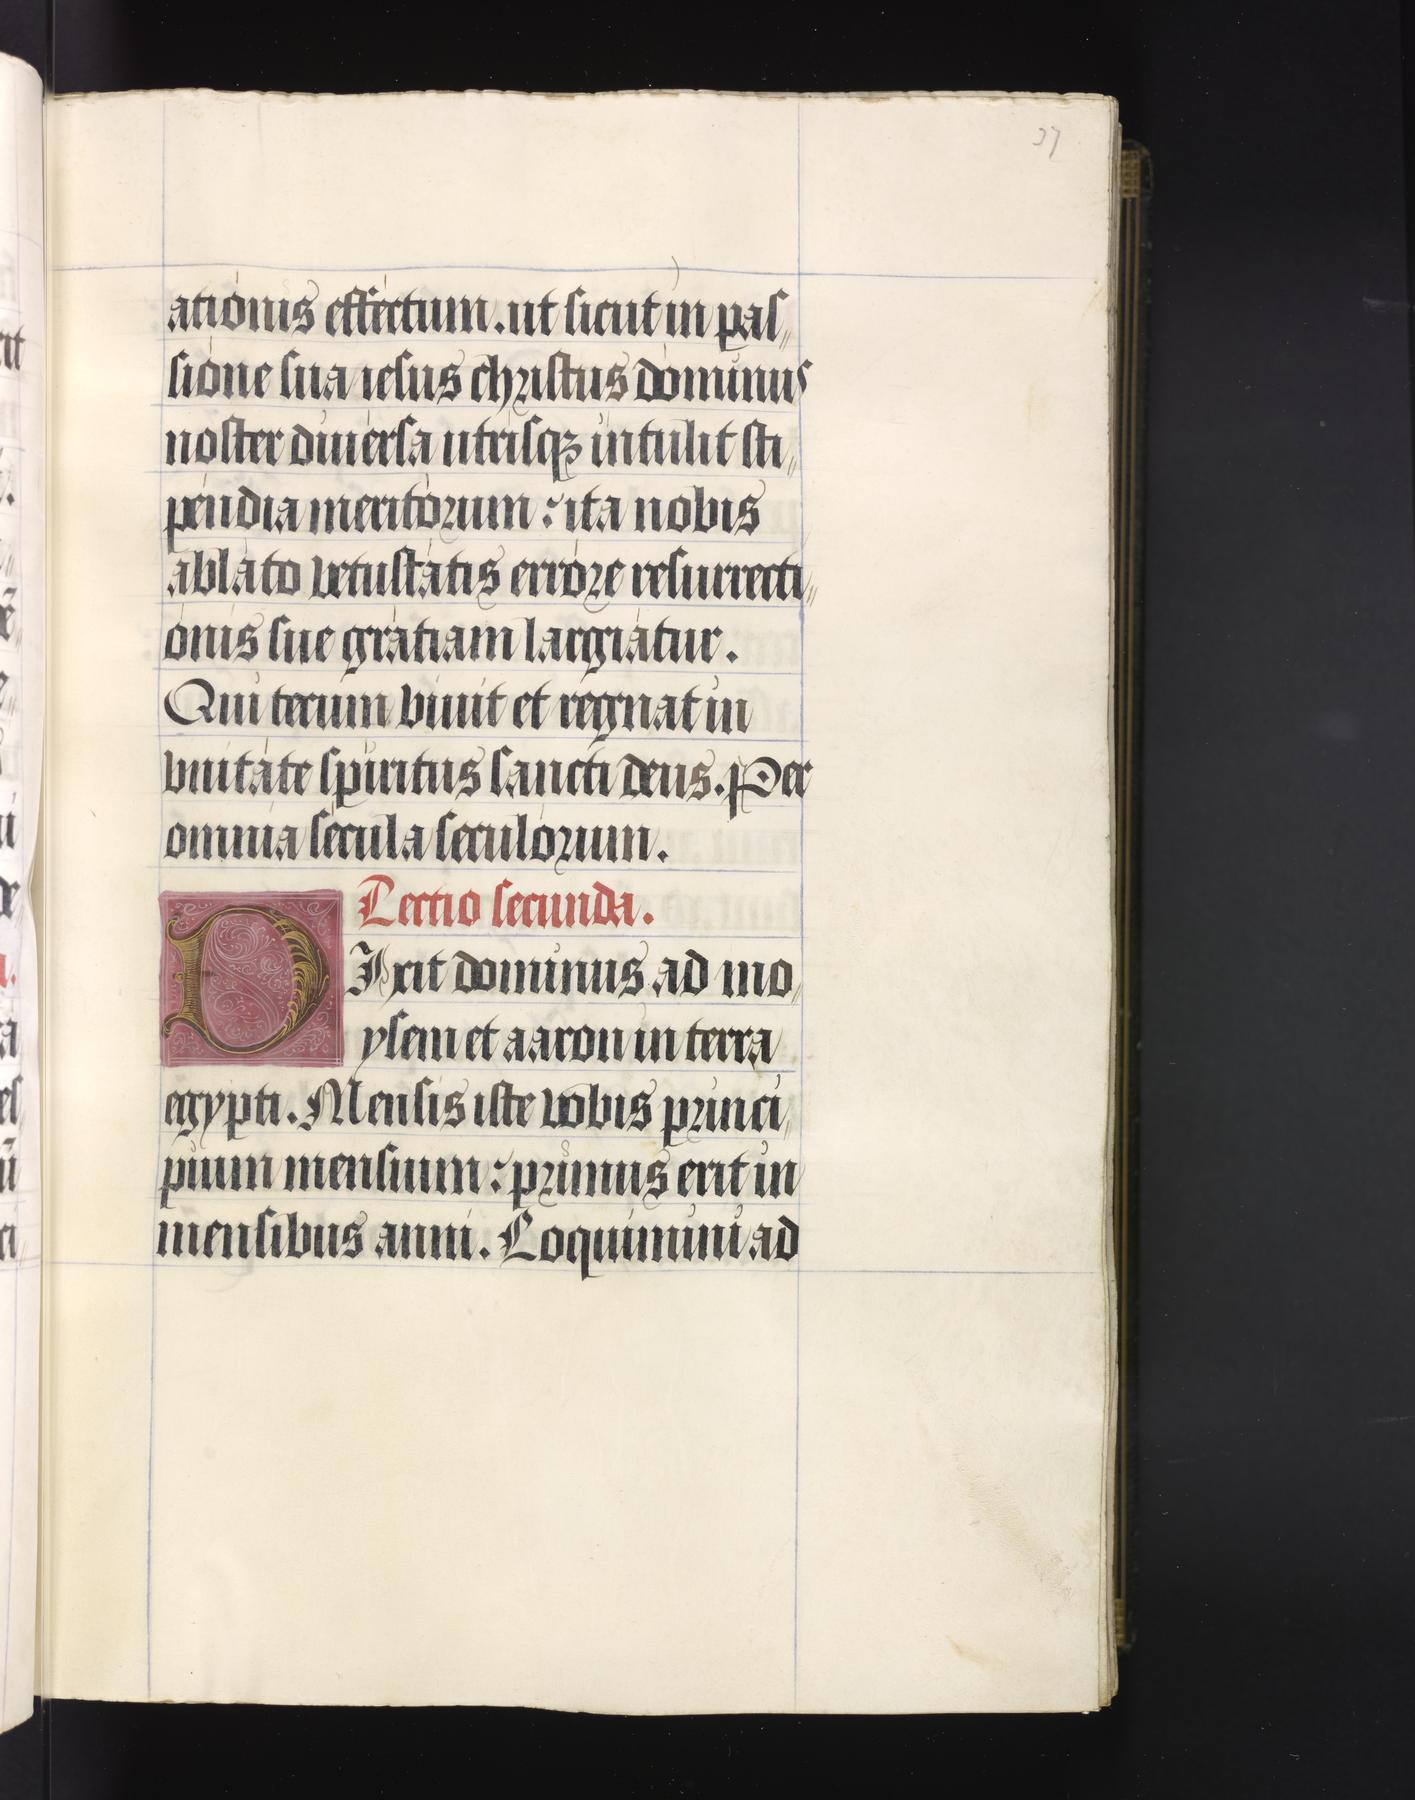 37
ationis effectum. ut sicut in pas//
sione sua iesus christus dominus
noster diuersa utrisqꝫ intulit sti//
pendia meritorum : ita nobis
ablato vetustatis errore resurrecti//
onis sue gratiam largiatur.
Qui tecum viuit et regnat in
vnitate spiritus sancti deus. Per
omnia secula seculorum.
Lectio secunda.
DIxit dominus ad mo//
ysem et aaron in terra
egypti. Mensis iste vobis princi//
pium mensium : primus erit in
mensibus anni. Loquimini ad